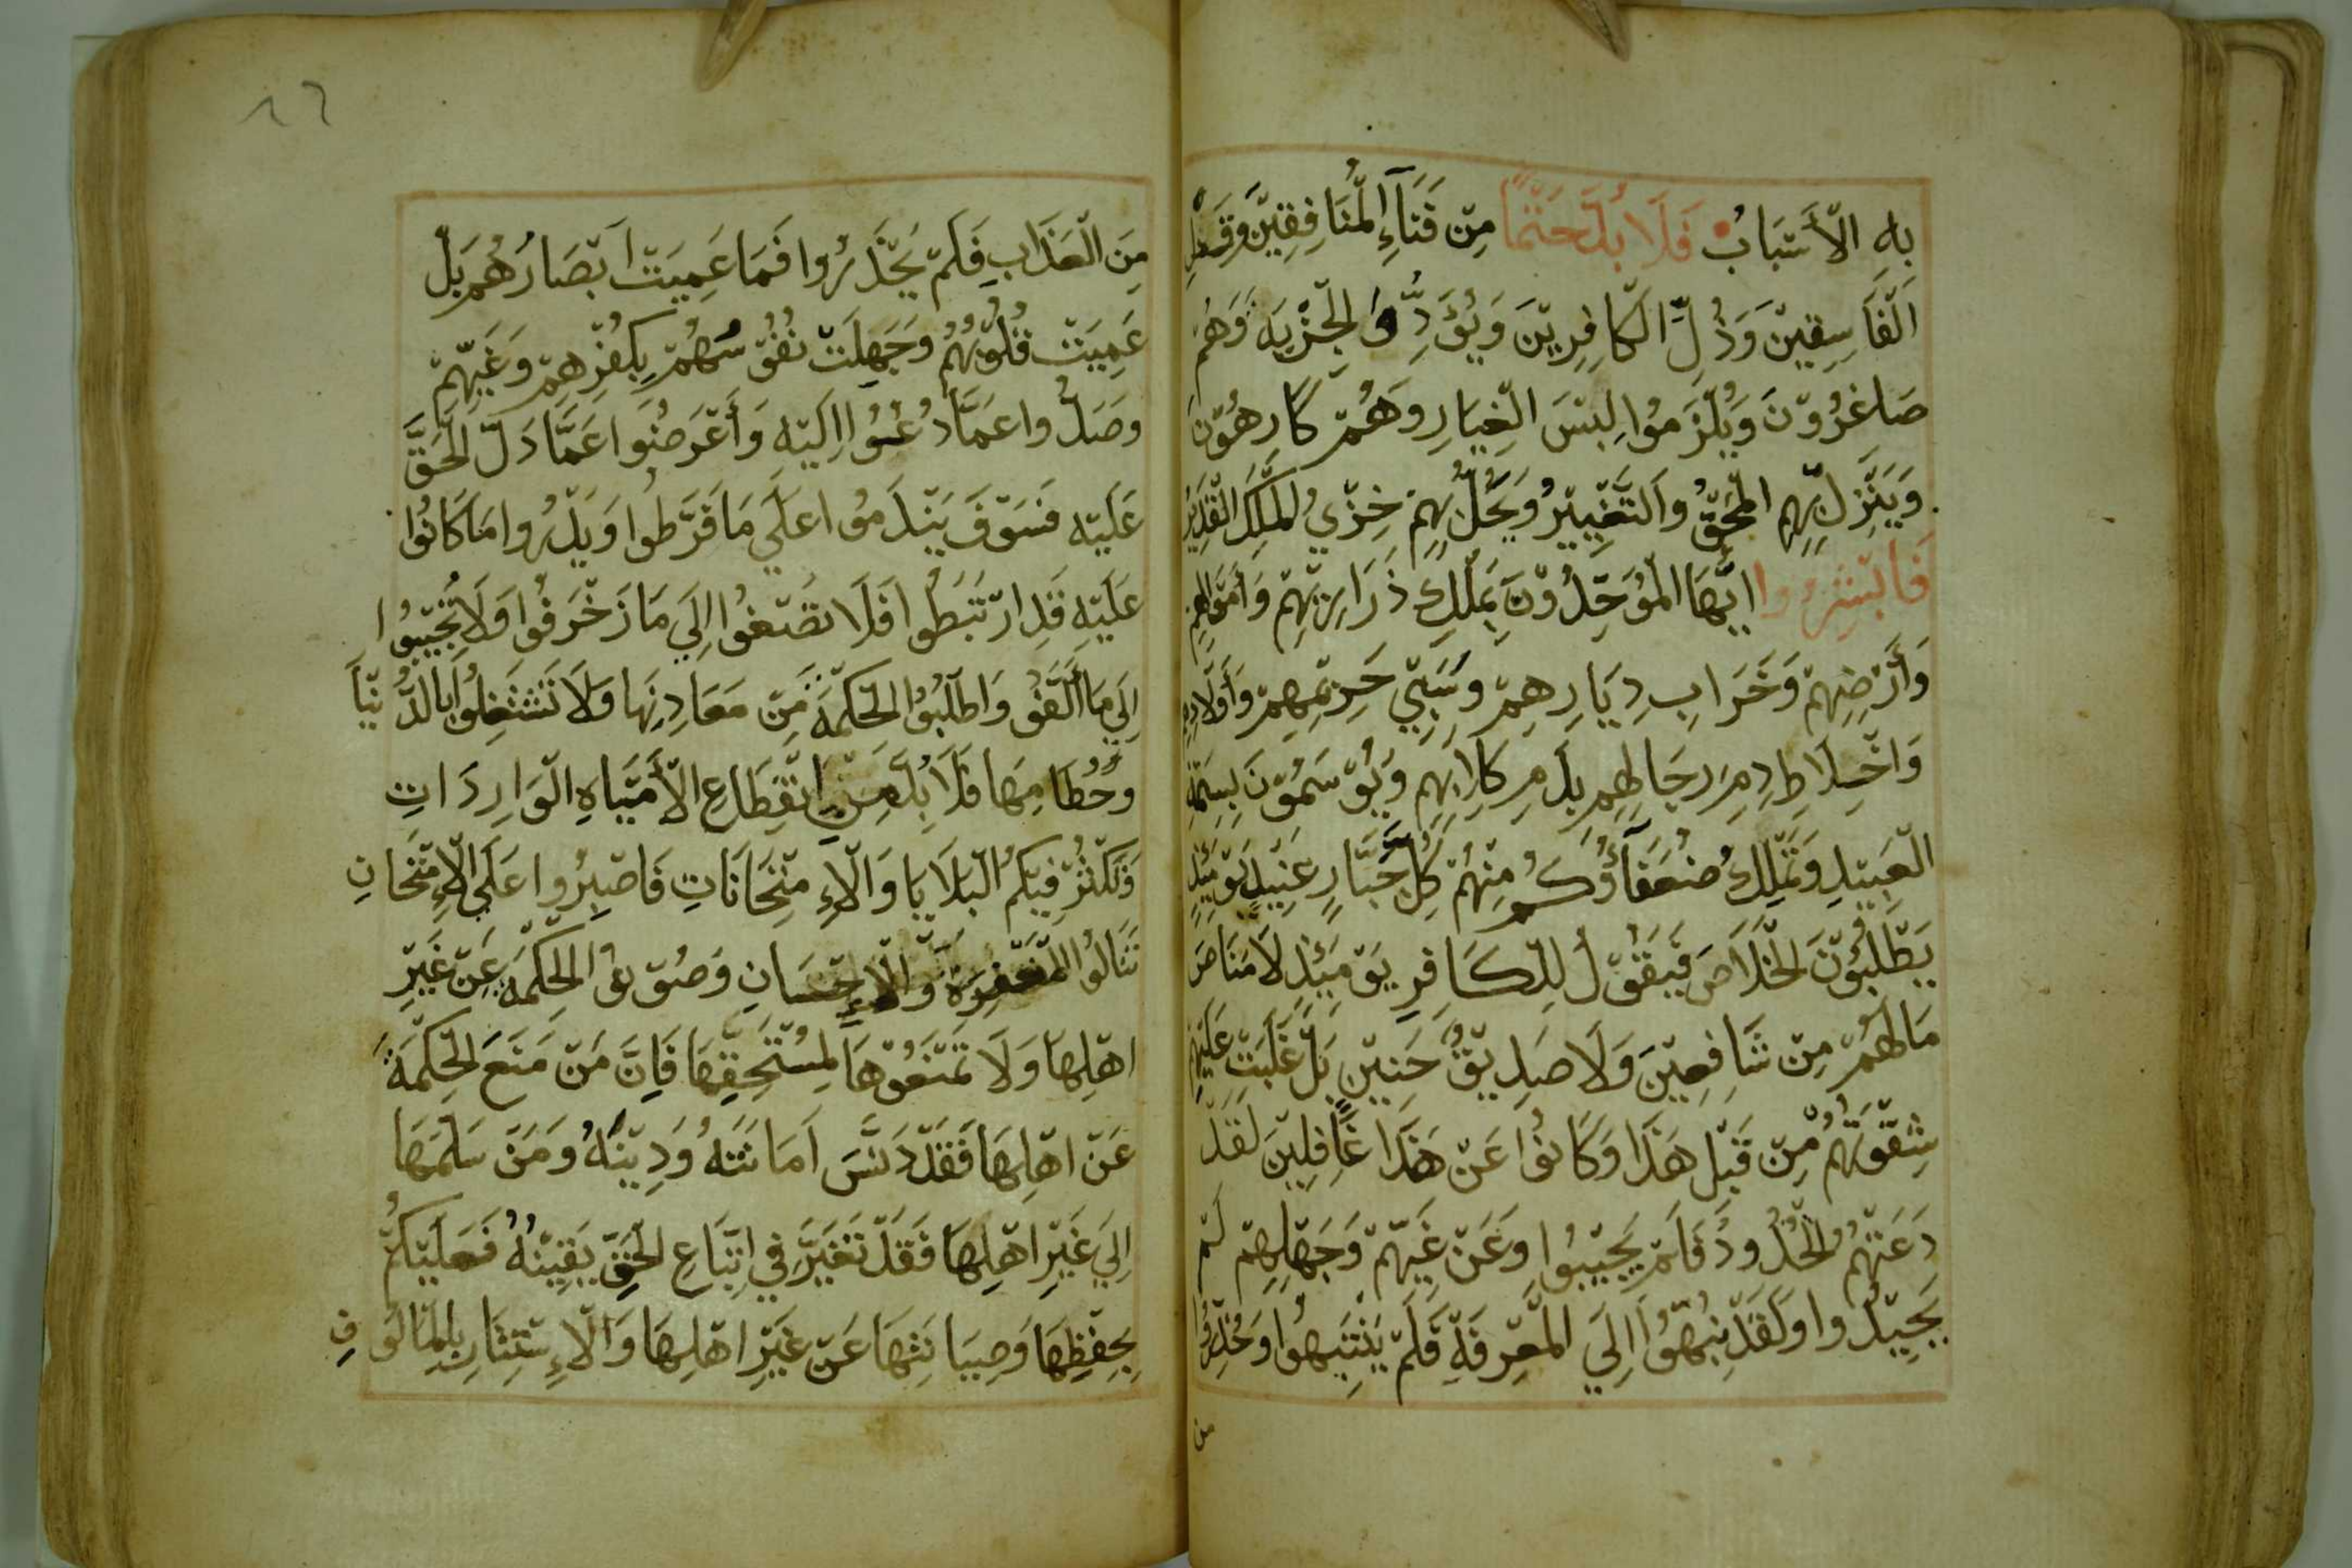 بِهِ الْأَسْبَابُ فَلَا بُدَّ حَتْمًا مِنْ فَنَآءِ الْمُنَافِقِيْنَ وَقَصْلِ
اَلْفَاسِقِيْنَ وَذُلِّ الْكَافِرِيْنَ وَيُؤَدُّوا الْجِزْيَه وَهُمْ
صَاغِرُوْنَ وَيُلْزَمُوا لِبْسَ الْغِيَارِ وَهُمْ كَارِهُوْنَ
وَيَنْزِلُ بِهِمِ الْمَحْقُ وَالتَّغْيِيْرُ وَيَحُلُّ بِهِمْ خِزْيُ الْمَلِكِ الْقَدِيْرِ
فَابْشِرُوا ايُّهَا الْمُوَحِّدُوْنَ بِمَلْكِ ذَرَارِيْهِمْ وَأَمْوَالِهِمْ
وَأَرْضِهِمْ وَخَرَابِ دِيَارِهِمْ وَسَبْيِ حَرِيْمِهِمْ وَأَوْلَادِهِمْ
وَاخْتِلَاطِ دِمَ رِجَالِهِمْ بِدَمِ كِلَابِهِمِ وَيُوْسَمُوْنَ بِسِمَةِ
الْعَبِيْدِ وَتَمْلِكُ ضُعَفَآؤُكُمْ مِنْهُمْ كُلَّ جَبَّارٍ عَنِيْدٍ يَوْمَئِذٍ
يَطْلُبُوْنَ الْخَلَاصَ فَيَقُوْلُ لِلْكَافِرِ يَوْمَئِذٍ لَا مَنَاصَ
مَا لَهُمْ مِنْ شَافِعِيْنَ وَلَا صَدِيْقٍ حَنِيْنٍ بَلْ غَلَبَتْ عَلَيْهِمْ
شِقْوَتُهُمْ مِنْ قَبْلِ هَذَا وَكَانُوْا عَنْ هَذَا غَافِلِيْنَ لَقَدْ
دَعَتْهُمُ الْحُدُودُ فَلَمْ يُجِيْبُوا وَعَنْ غَيِّهِمْ وَجَهْلِهِمْ لَمْ
يَحِيْدُوا وَلَقَدْ نُبِّهُوْا اِلَي الْمَعْرِفَةِ فَلَمْ يَنْتَبِهُوا وَحُذِّرُوا
من
مِنَ الْعَذَابِ فَلَمْ يَحْذَرُوا فَمَا عَمِيَتْ ابْصَارُهُمْ بَلْ
عَمِيَتْ قُلُوْبُهُمْ وَجَهِلَتْ نُفُوْسُهُمْ بِكُفْرِهِمْ وَغَيِّهِمْ
وَصَدُّوا عَمَّا دُعُوْا اِلَيْهِ وَأَعْرَضُوا عَمَّا دَلَّ الْحَقُّ
عَلَيْهِ فَسَوْفَ يَنْدَمُوا عَلَي مَا فَرَّطُوا وَيَدْرُوا مَا كَانُوا
عَلَيْهِ قَدِ ارْتَبَطُوا فَلَا تَصْغُوا اِلَي مَا زَخْرَفُوا وَلَا تُجِيْبُوا
اِلَي مَا أَلَّفُوْا وَاطْلُبُوْا الْحِكْمَةَ مِنْ مَعَادِنِهَا وَلَا تَشْتَغِلُوا بِالدُّنْيَا
وَحُطَامِهَا فَلَا بُدَّ مِنِ انْقِطَاعِ الْأَمْيَاهِ الْوَارِدَاتِ
وَتَكْثُرُ فِيْكُمُ الْبَلَايَا وَالْاِمْتِحَانَاتِ فَاصْبِرُوا عَلَي الْاِمْتِحَانِ
تَنَالُوْا الْمَغْفِرَةَ وَالْاِحْسَانِ وَصُوْنُوْا الْحِكْمَةَ عَنْ غَيْرِ
اهْلِهَا وَلَا تَمْنَعُوْهَا لِمُسْتَحِقِّهَا فَاِنَّ مَنْ مَنَعَ الْحِكْمَةَ
عَنْ اهْلِهَا فَقَدْ دَنَّسَ اَمَانَتَهُ وَدِيْنَهُ وَمَنْ سَلَّمَهَا
اِلَي غَيْرِ اهْلِهَا فَقَدْ تَغَيَّرَ فِي اِتِّبَاعِ الْحَقِّ يَقِيْنُهُ فَعَلَيْكُمْ
بِحِفْظِهَا وَصِيَانَتِهَا عَنْ غَيْرِ اهْلِهَا وَالْاِسْتِتَارِ بِالْمَالُوفِ